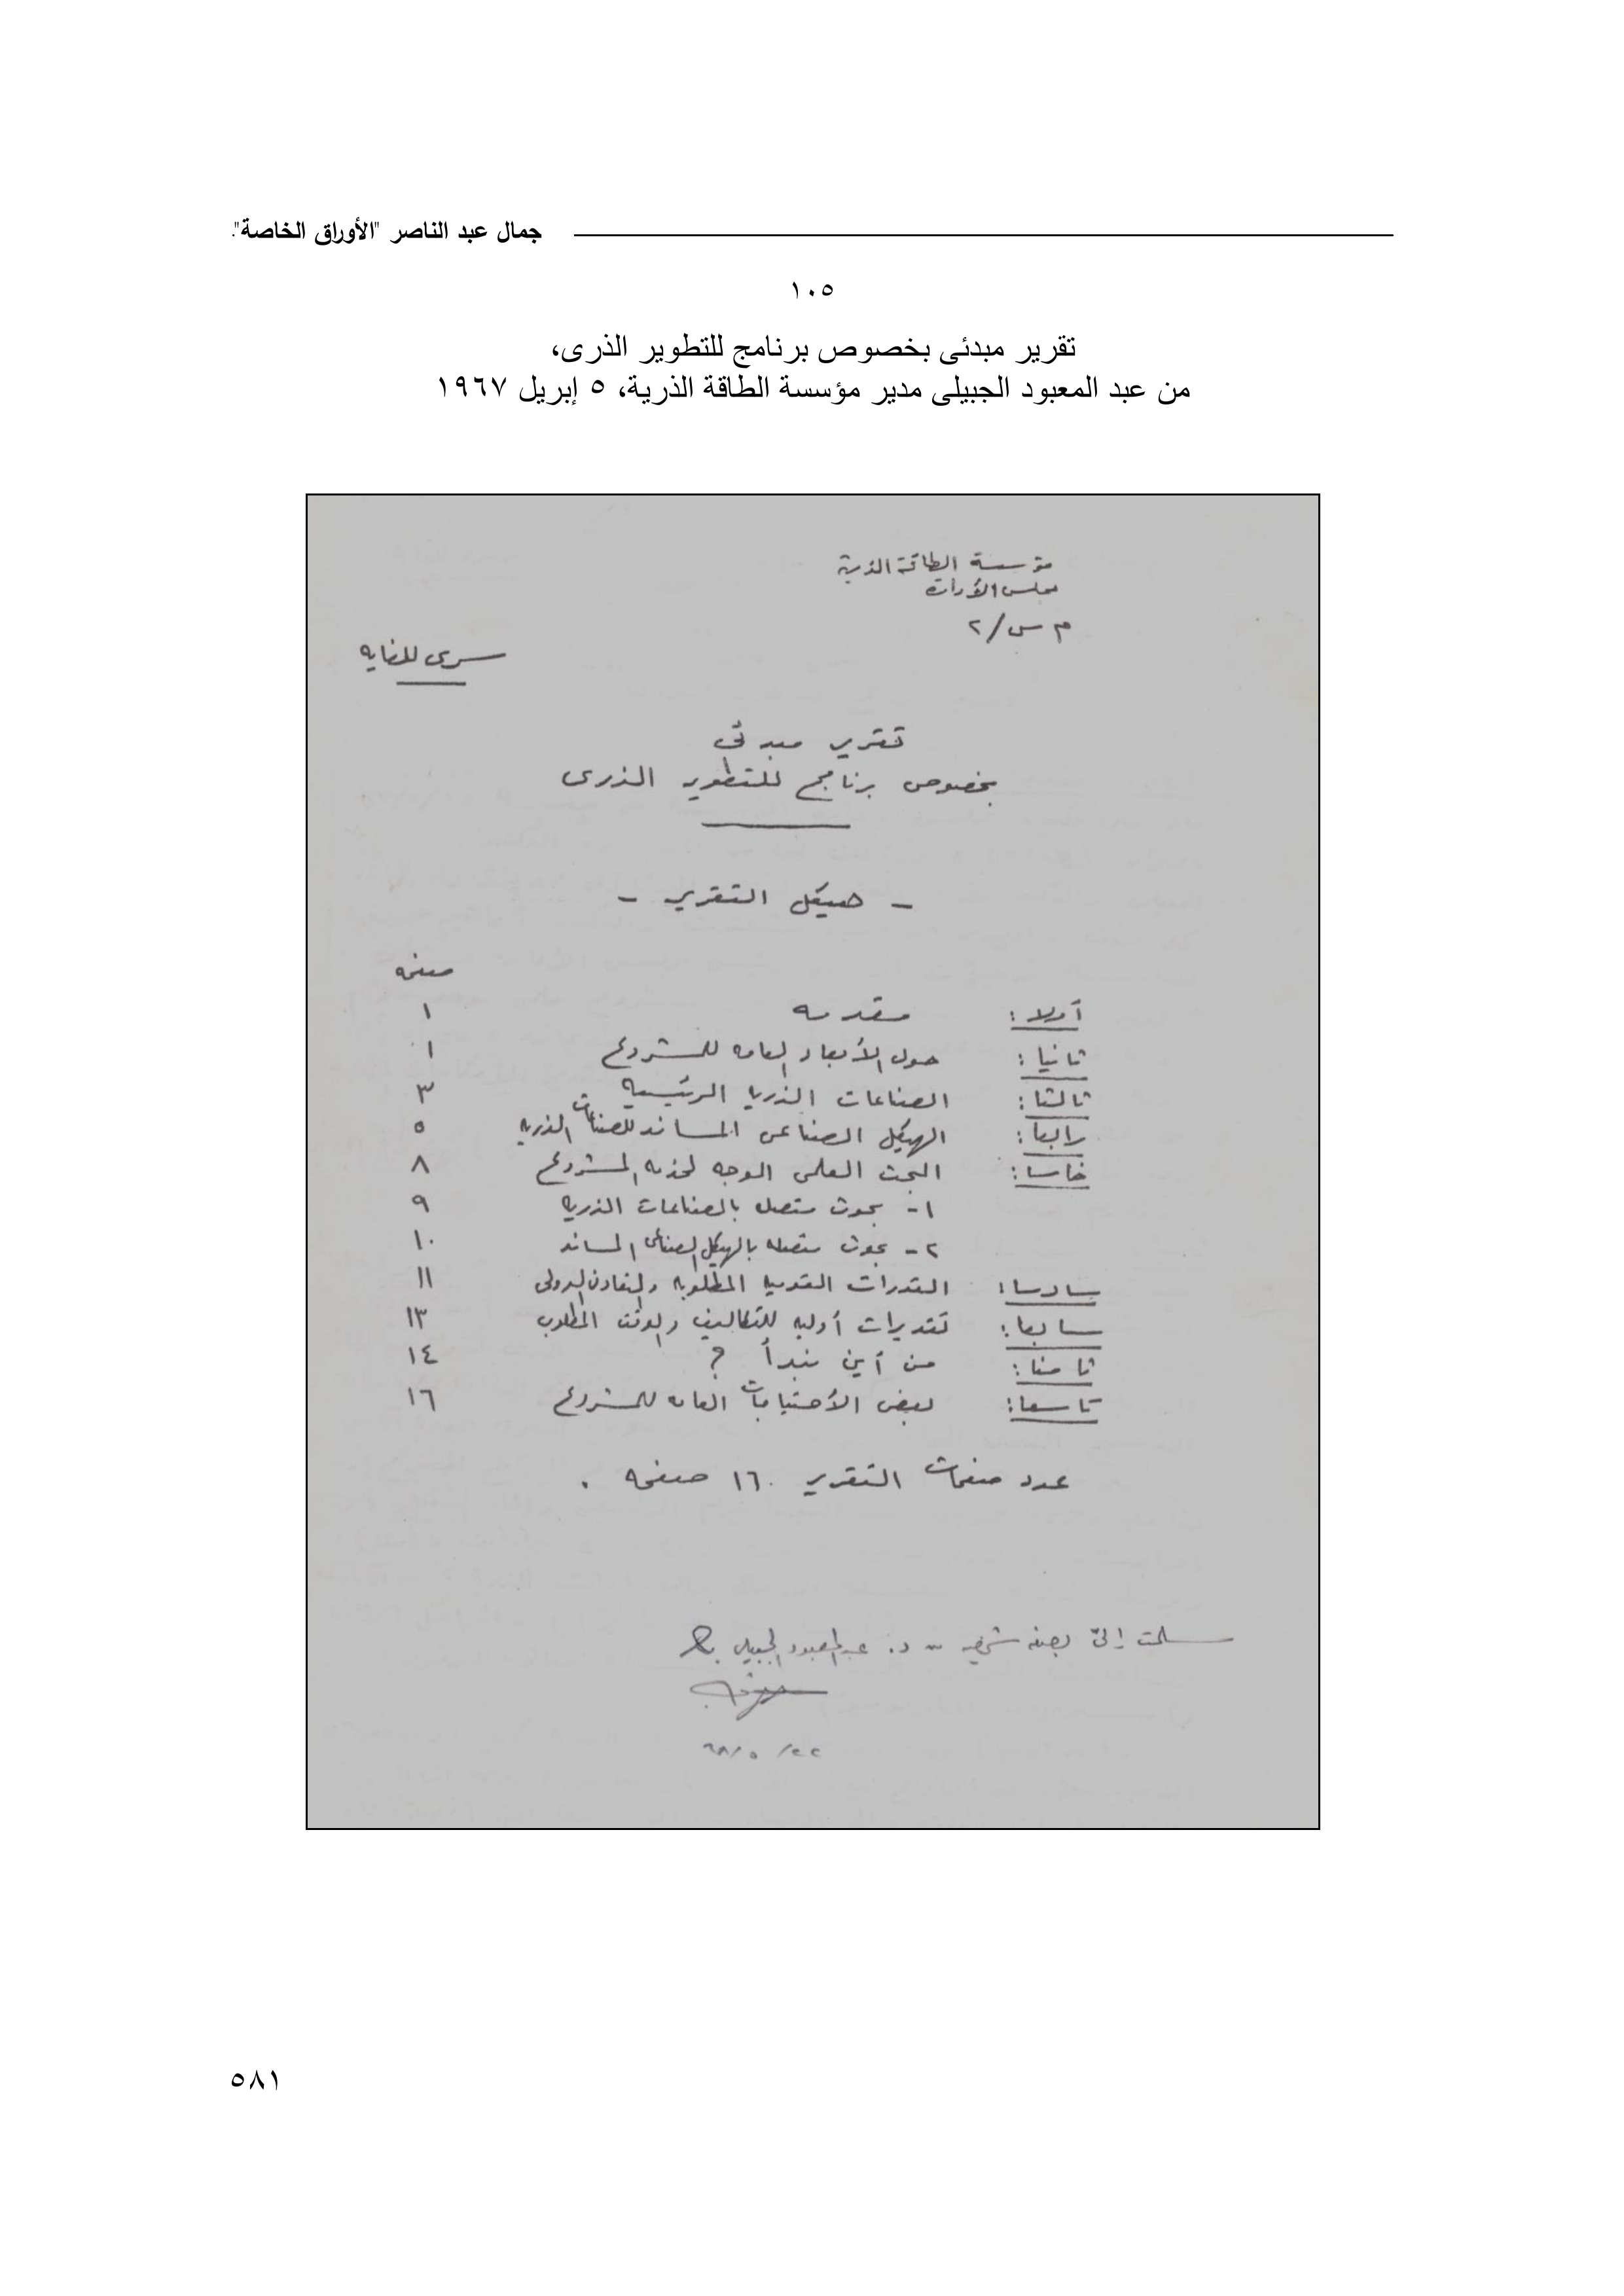 جمال عبد الناصر "الأوراق الخاصة".
١٠٥
تقرير مبدئى بخصوص برنامج للتطوير الذرى،
من عبد المعبود الجبيلى مدير مؤسسة الطاقة الذرية، ٥ إبريل ١٩٦٧
مؤسسة الطاقة الذرية
مجلس الأدارة
م س/٢
سرى للغايه
تقرير مبدئى
بخصوص برنامج للتطوير الذرى
- هيكل التقرير -
صفحه
أولا: مقدمه ١
ثانيا: حول الأبعاد العامه للمشروع ١
ثالثا: الصناعات الذريه الرئيسيه ٣
رابعا: الهيكل الصناعى المساند للصناعات الذريه ٥
خامسا: البحث العلمى الموجه لخدمه المشروع ٨
١- بحوث متصله بالصناعات الذريه ٩
٢- بحوث متصله بالهيكل الصناعى المساند ١٠
سادسا: القدرات القوميه المطلوبه والتعاون الدولى ١١
سابعا: تقديرات أوليه للتكاليف والوقت المطلوب ١٣
ثامنا: من أين نبدأ ؟ ١٤
تاسعا: بعض الأحتياجات العامه للمشروع ١٦
عدد صفحات التقرير ١٦ صفحه .
سلمت إلىّ بصفه شخصيه من د. عبد المعبود الجبيلى
٥٨١